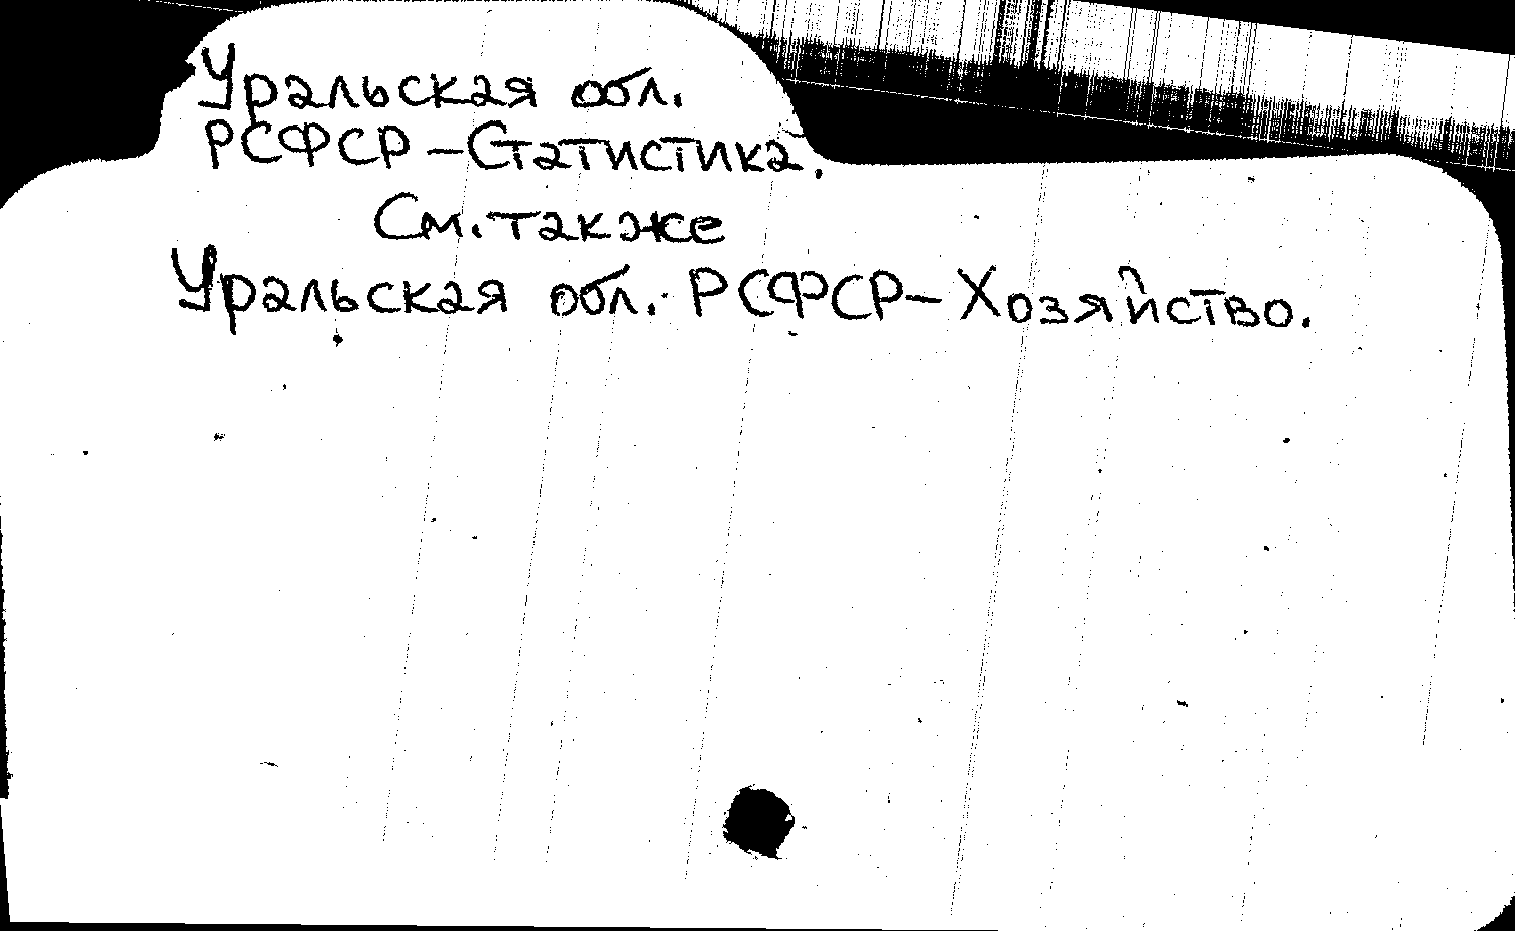 Уральская обл.
РСФСР – Статистика.
См. также
Уральская обл. РСФСР – Хозяйство.